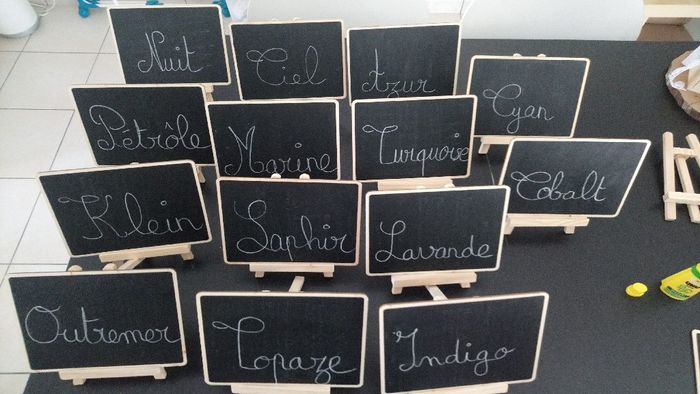 Nuit
Ciel
Azur
Cyan
Pétrôle
Marine
Turquoise
Cobalt
Klein
Saphir
Lavande
Outremer
Topaze
Indigo